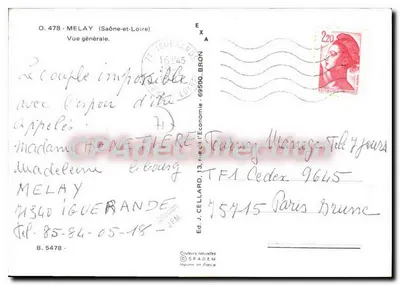 O. 478 - MELAY (Saône-et-Loire)
Vue générale.
EXA
16-45
2,20
Le couple impossible
avec l'espoir d'être
appelés.
Madame
Madeleine
MELAY
71340 IGUERANDE
Tel. 85-84-05-18-
B. 5478 -
Ed. J. CELLARD, 13, l'Economie - 69500 BRON
Couleurs naturelles
© SPADEM
Imprimé en France
7 jours
TF1 Cedex 9645
75715 Paris Brune